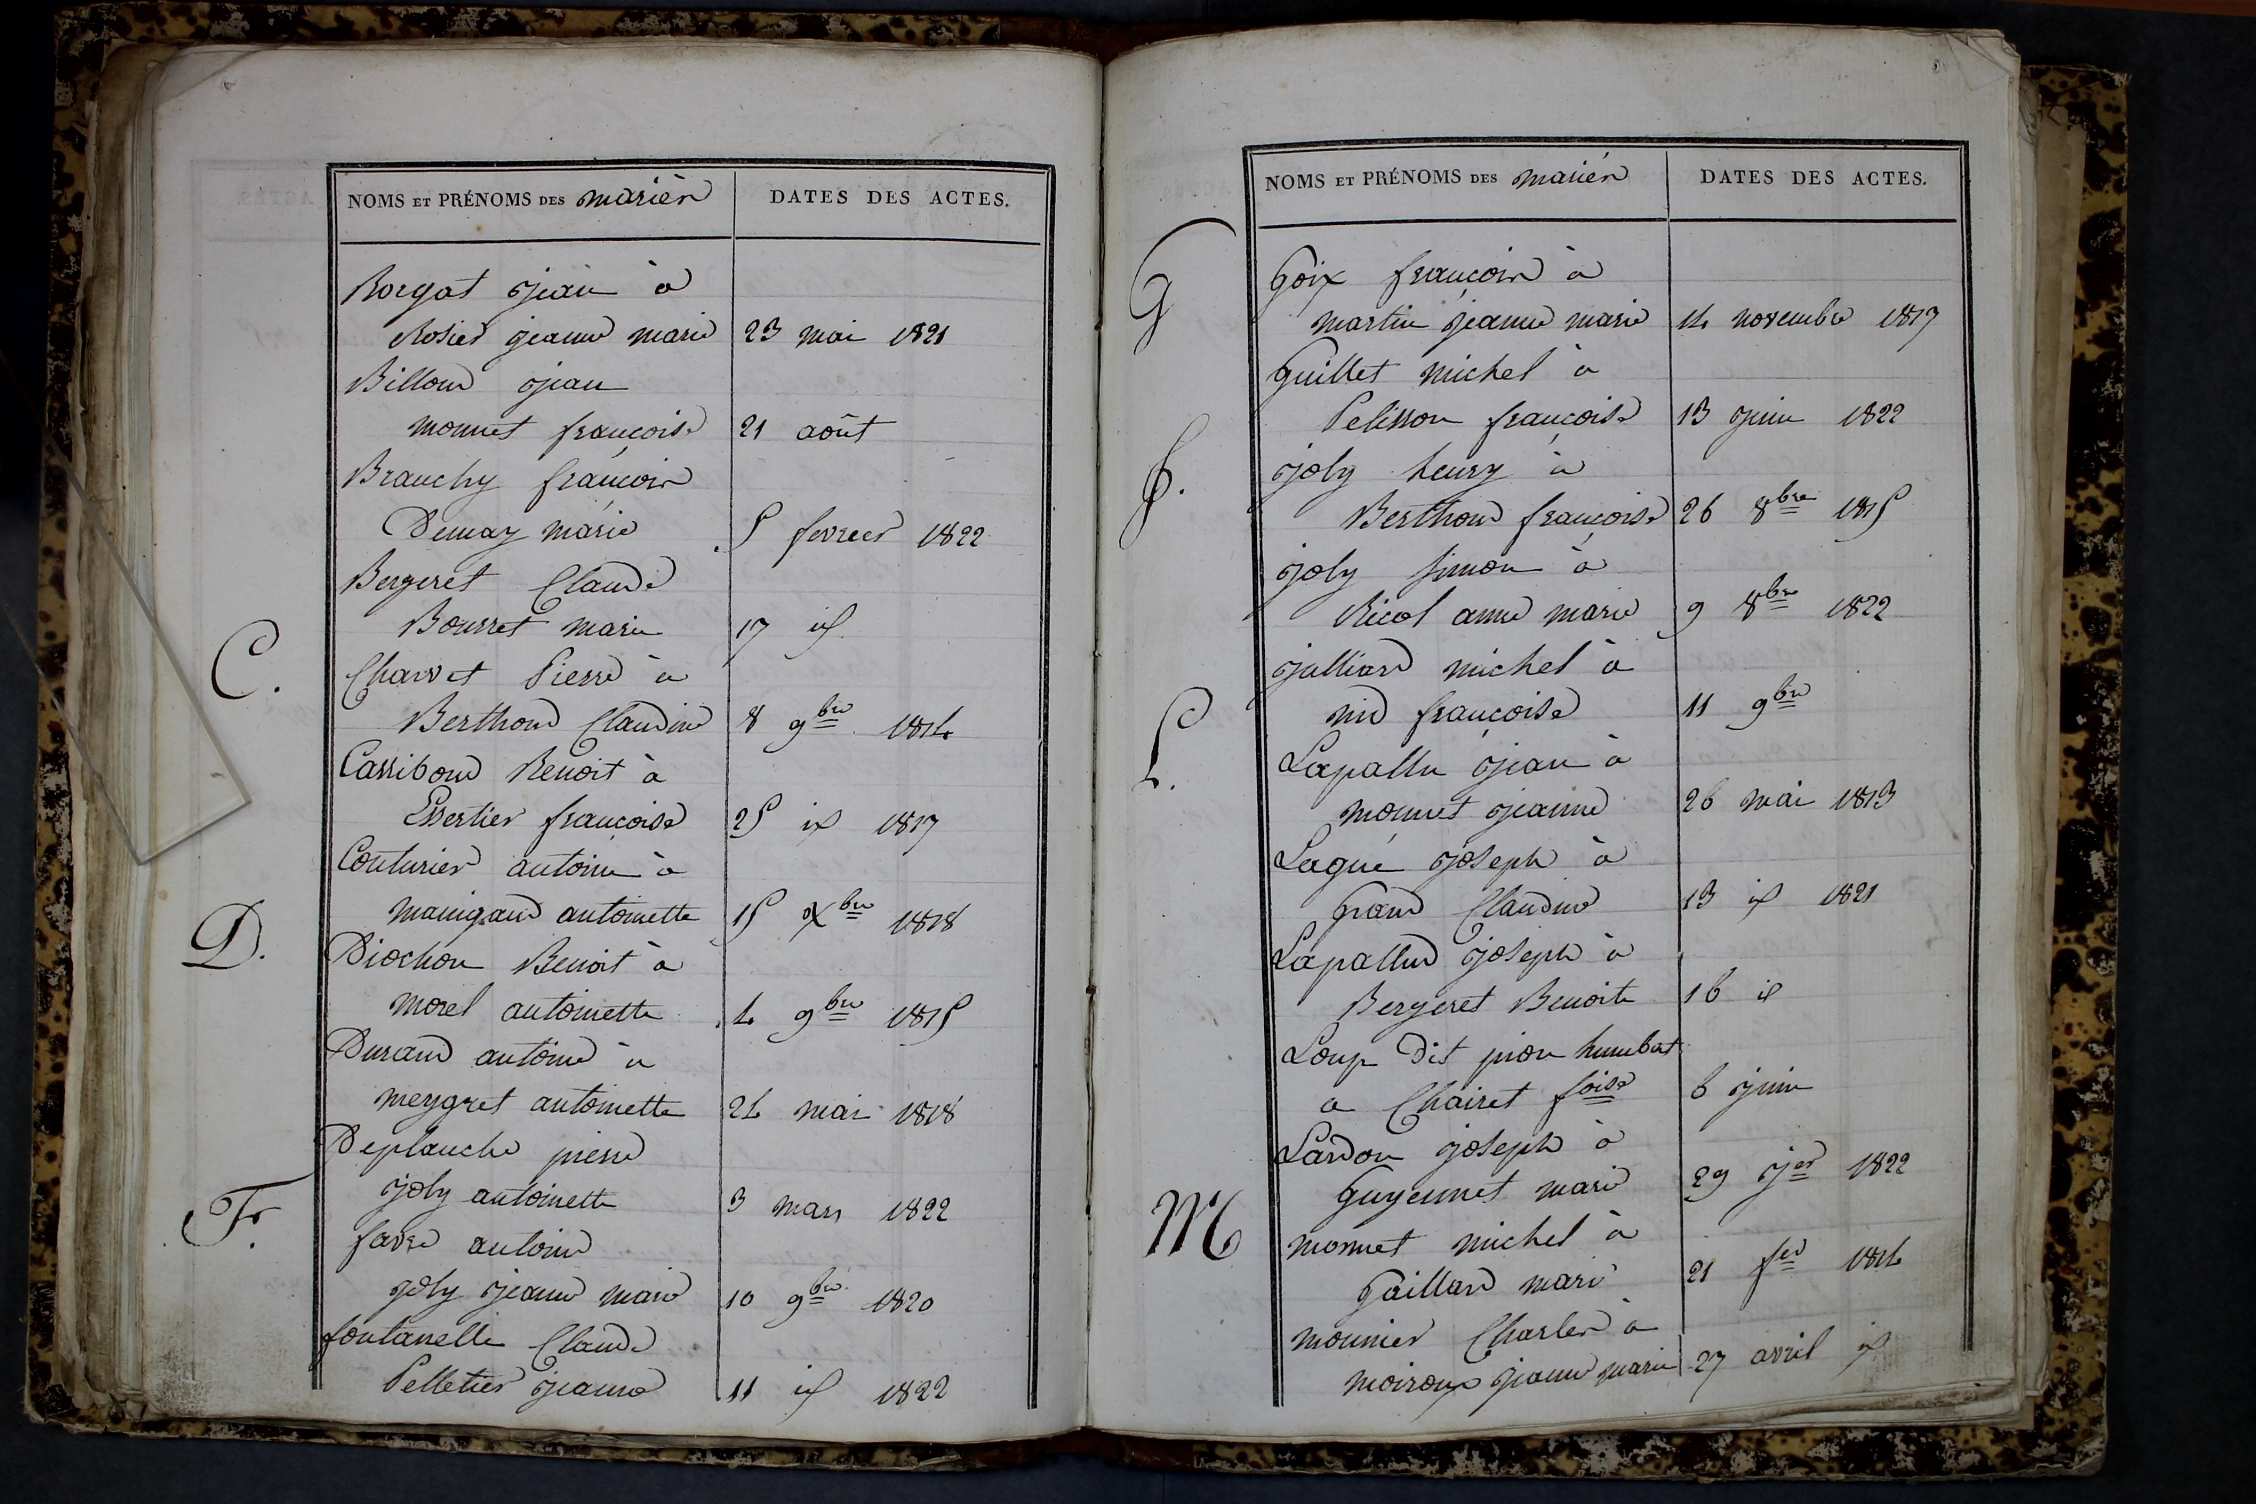 NOMS ET PRÉNOMS DES mariés
DATES DES ACTES.
Borgat jean à
Rosier jeanne marie 23 mai 1821
Billoud jean
monnet françoise 21 août
Branchy françois
Demay marie 5 fevrier 1822
Bergeret Claude
Bourret marie 17 id
C.
Charvet Pierre à
Berthoud Claudine 8 9bre 1814
Cassiboud Benoit à
Essertier françoise 25 id 1817
Couturier antoine à
maingaud antoinette 15 Xbre 1818
D.
Diochon Benoit à
morel antoinette 4 9bre 1815
Durand antoine à
meygret antoinette 24 mai 1818
Deplanche pierre
joly antoinette 3 mars 1822
F.
favre antoine
joly jeanne marie 10 9bre 1820
fontanelle Claude
Pelletier jeanne 11 id 1822
NOMS ET PRÉNOMS DES mariés
DATES DES ACTES.
G
Goix françois à
martin jeanne marie 14 novembre 1817
Guillet michel à
Pelisson françoise 13 juin 1822
J.
joly henry à
Berthoud françoise 26 8bre 1815
joly simon à
Ricol anne marie 9 8bre 1822
julliard michel à
nid françoise 11 9bre
L.
Lapallu jean à
monnet jeanne 26 mai 1813
Lagué joseph à
Grand Claudine 13 id 1821
Lapallud joseph à
Bergeret Benoite 16 id
Loup dit pion humbert
a Chairet foise 6 juin
Lardon joseph à
Guyennet marie 29 jer 1822
M
monnet michel à
Gaillard marie 21 fer 1814
mounier Charles à
moiroux jeanne marie 27 avril id